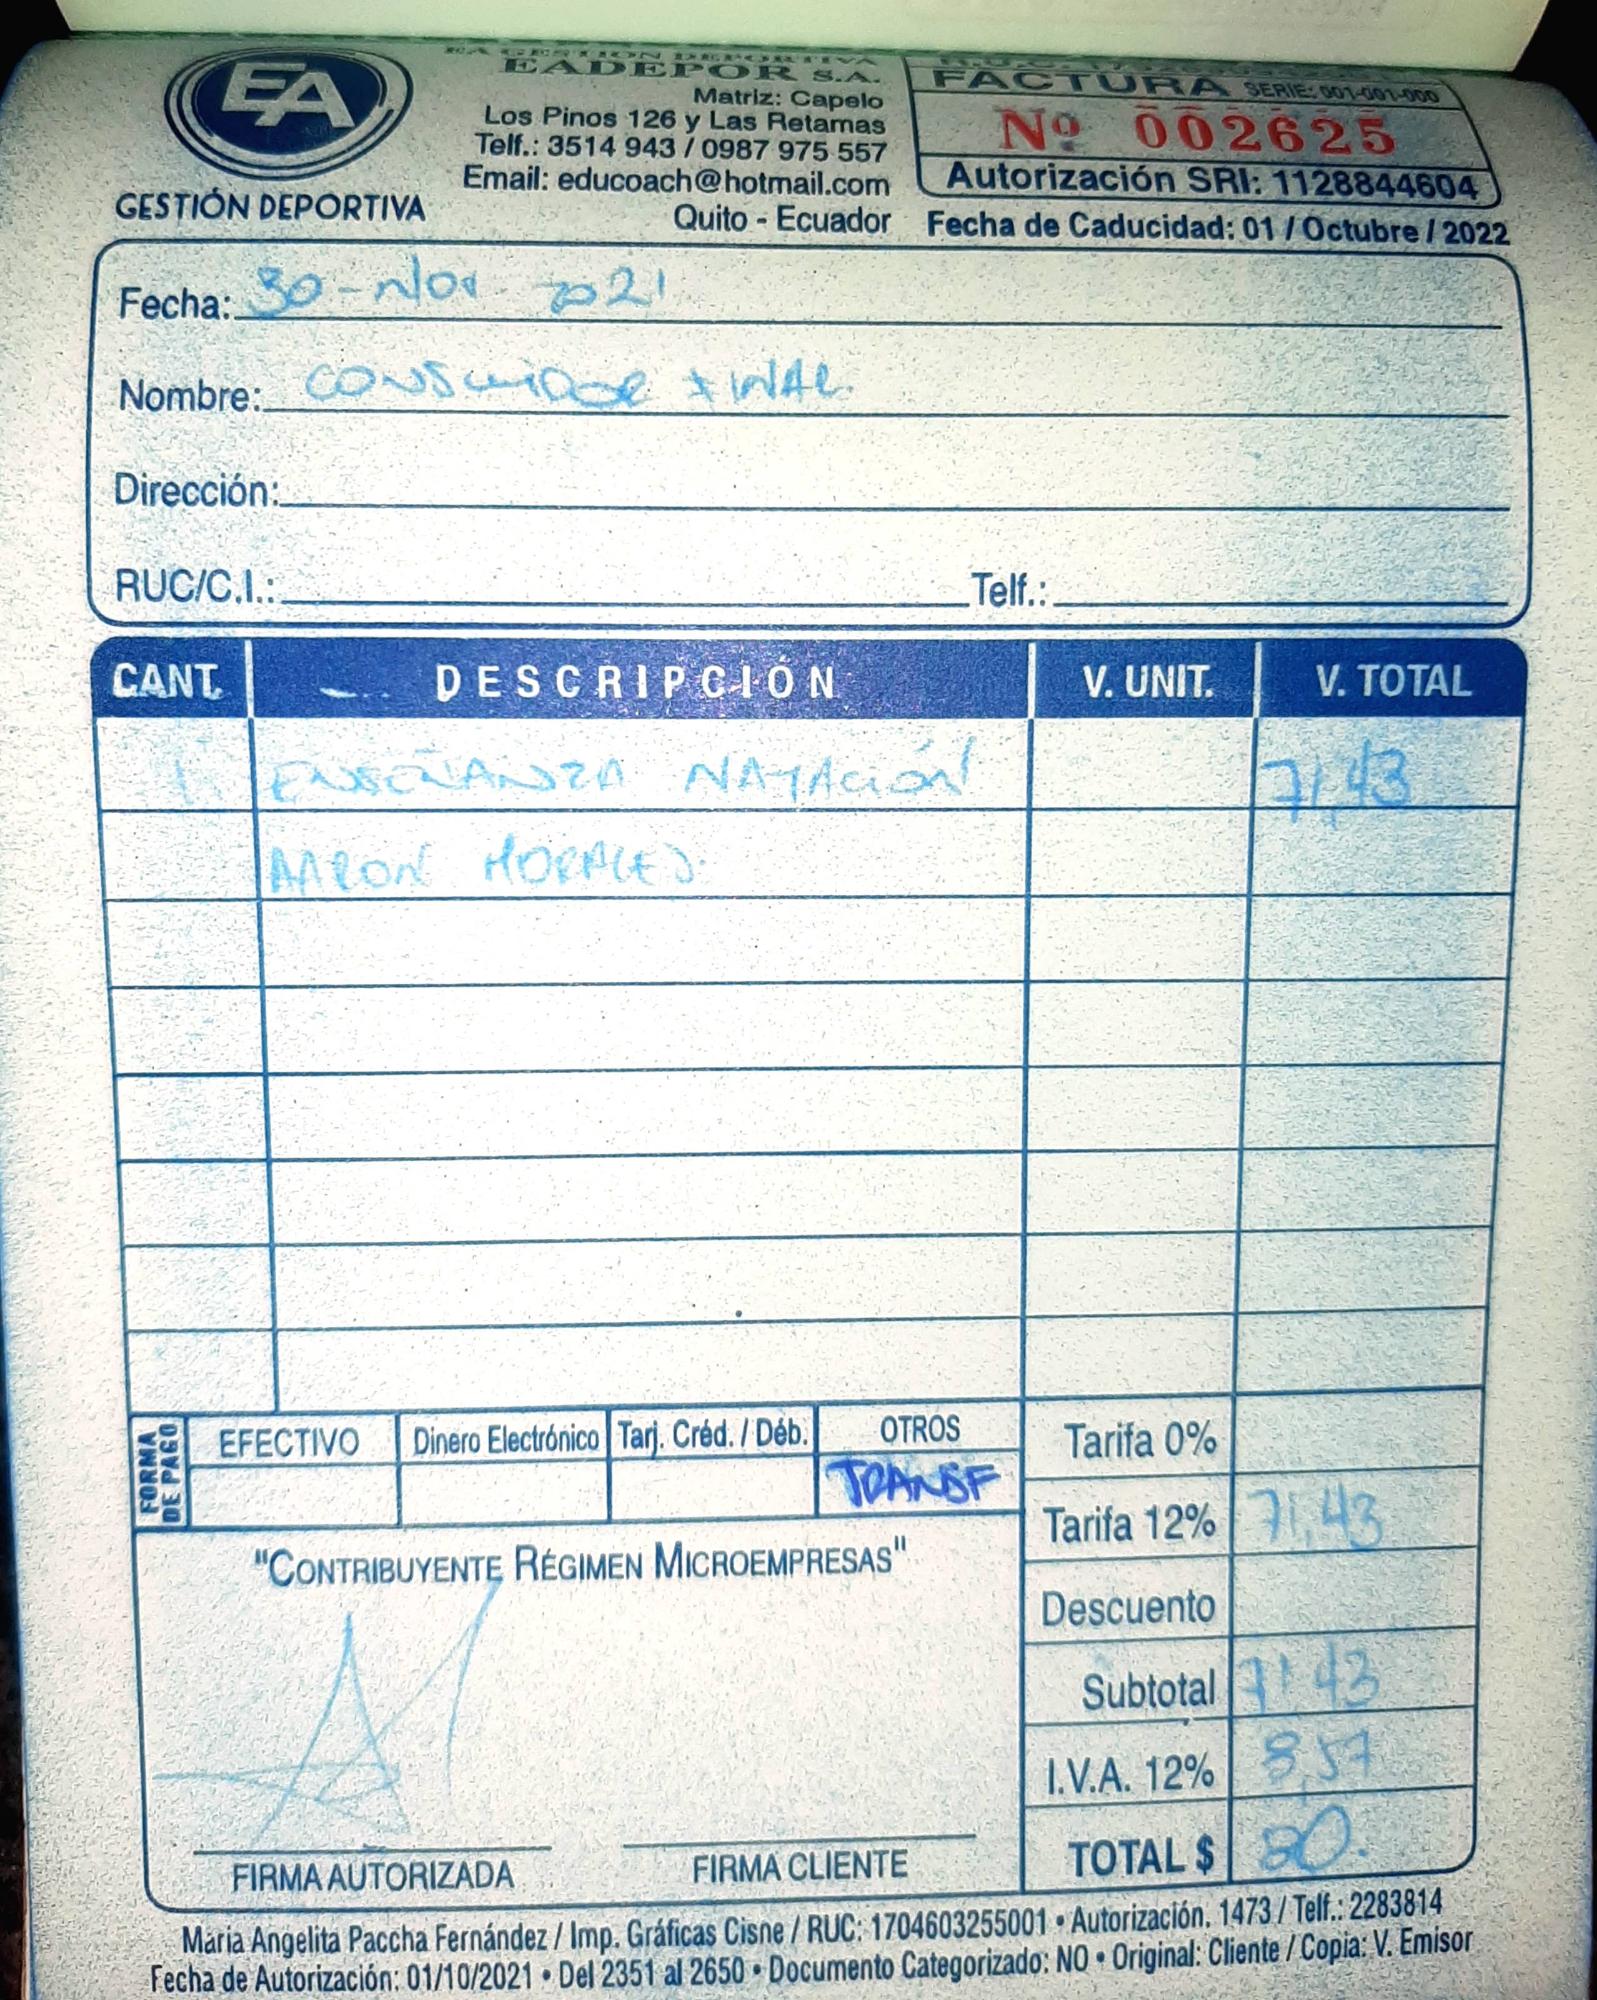 EA
GESTIÓN DEPORTIVA
EA GESTIÓN DEPORTIVA
EADEPOR S.A.
Matriz: Capelo
Los Pinos 126 y Las Retamas
Telf.: 3514 943 / 0987 975 557
Email: educoach@hotmail.com
Quito - Ecuador
FACTURA SERIE: 001-001-000
Nº 002625
Autorización SRI: 1128844604
Fecha de Caducidad: 01 / Octubre / 2022
Fecha: 30-Nov-2021
Nombre: CONSUMIDOR FINAL
Dirección:
RUC/C.I.: Telf.:
CANT. DESCRIPCIÓN V. UNIT. V. TOTAL
1 ENSEÑANZA NATACIÓN 71,43
AARON MORALES.
FORMA DE PAGO
EFECTIVO Dinero Electrónico Tarj. Créd. / Déb. OTROS
TRANSF
Tarifa 0%
Tarifa 12% 71,43
Descuento
Subtotal 71,43
I.V.A. 12% 8,57
TOTAL $ 80.
"CONTRIBUYENTE RÉGIMEN MICROEMPRESAS"
FIRMA AUTORIZADA FIRMA CLIENTE
Maria Angelita Paccha Fernández / Imp. Gráficas Cisne / RUC: 1704603255001 • Autorización. 1473 / Telf.: 2283814
Fecha de Autorización: 01/10/2021 • Del 2351 al 2650 • Documento Categorizado: NO • Original: Cliente / Copia: V. Emisor